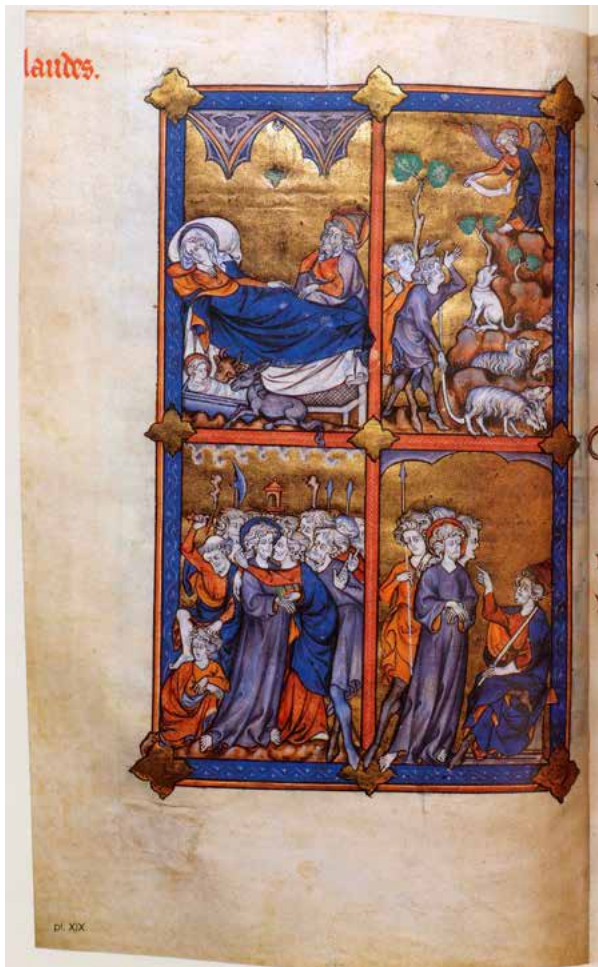 laudes.
pl. XIX